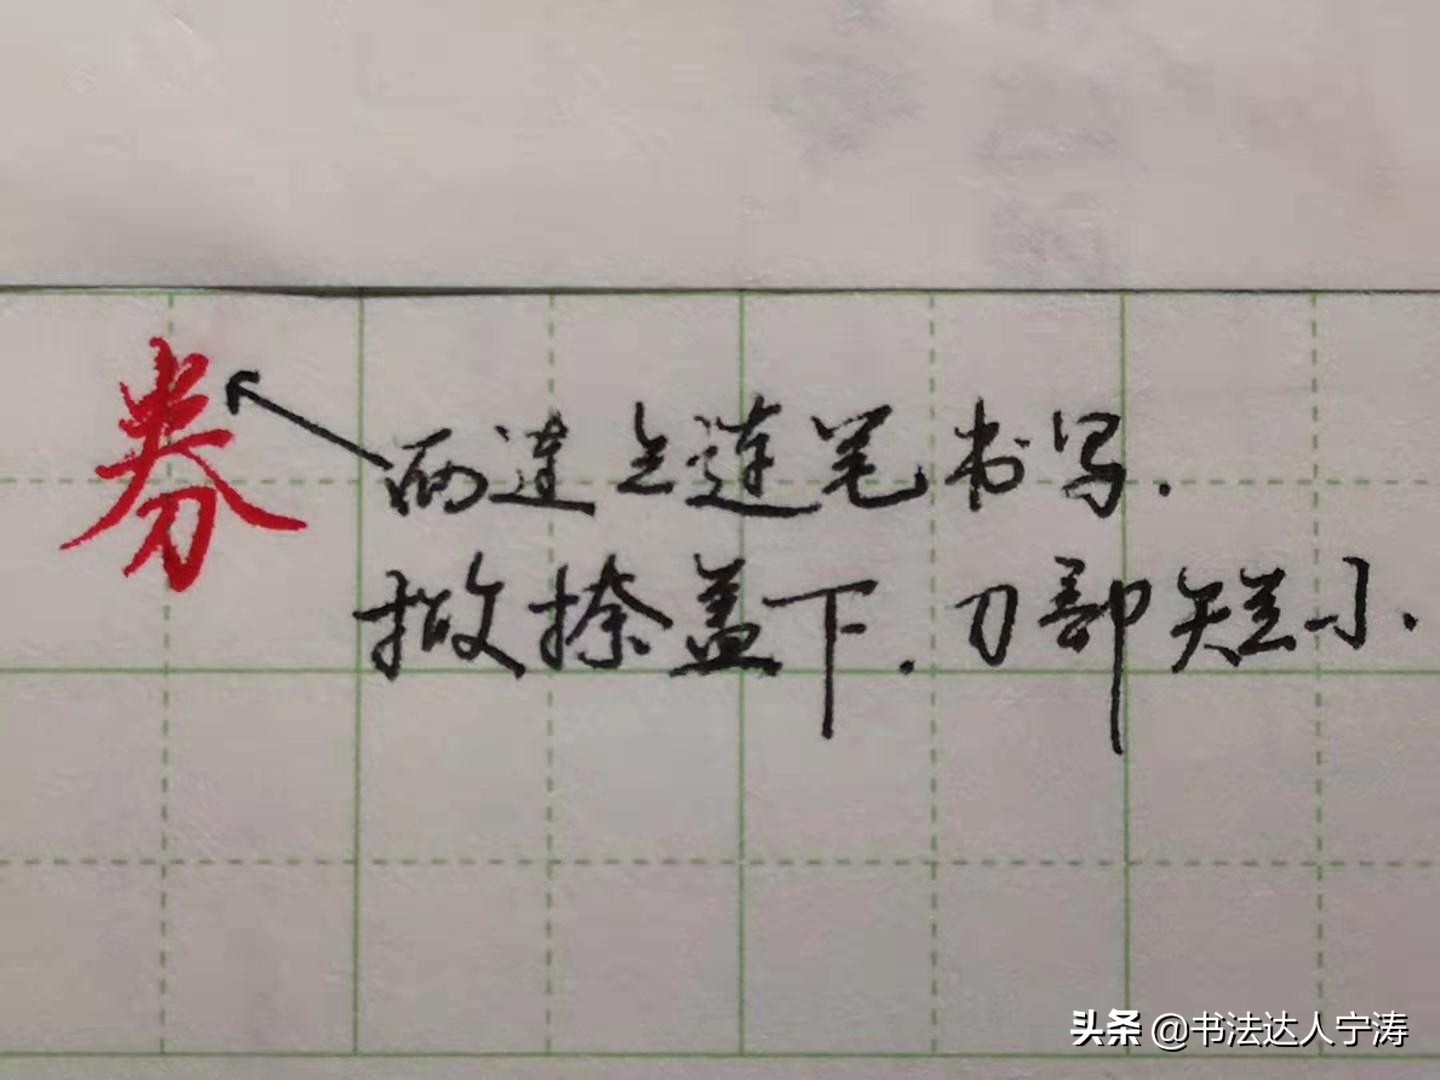 券
两连点连笔书写.
撇捺盖下.刀部短小.
头条 @书法达人宁涛